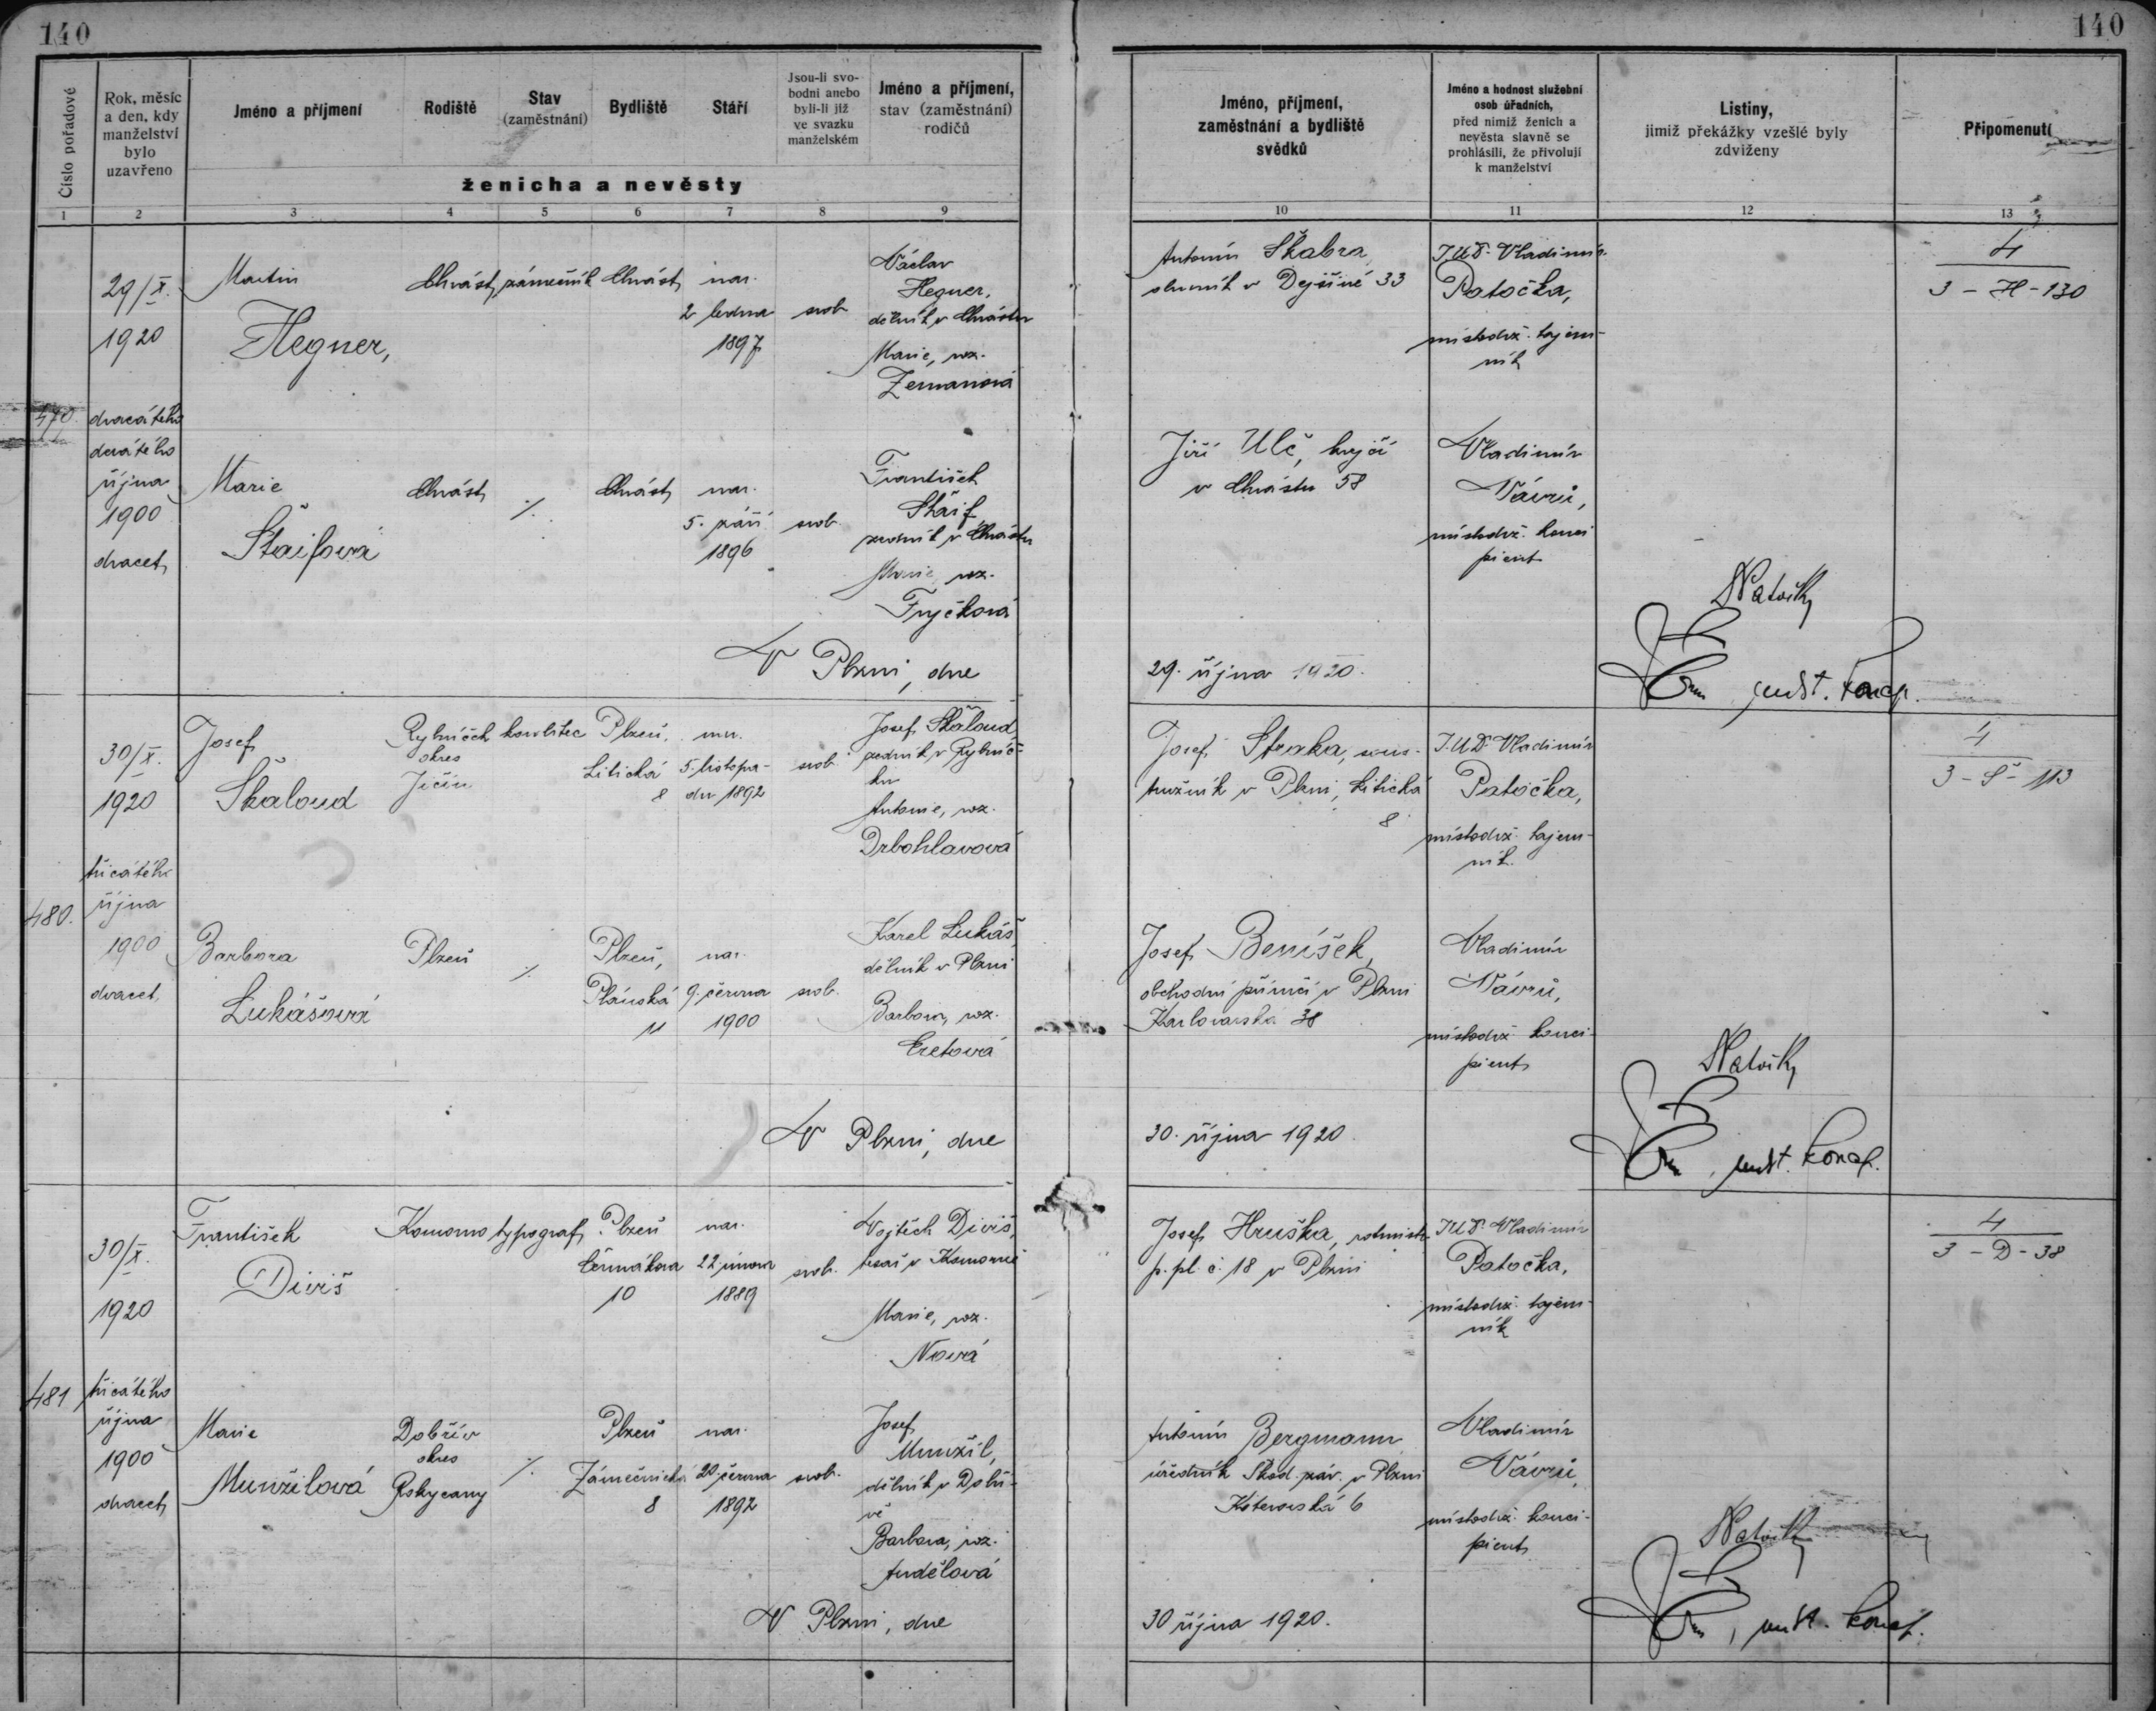 140
140
Číslo pořadové
Rok, měsíc
a den, kdy
manželství
bylo
uzavřeno
Jméno a příjmení
Rodiště
Stav
(zaměstnání)
Bydliště
Stáří
Jsou-li svo-
bodni anebo
byli-li již
ve svazku
manželském
Jméno a příjmení,
stav (zaměstnání)
rodičů
ženicha a nevěsty
Jméno, příjmení,
zaměstnání a bydliště
svědků
Jméno a hodnost služební
osob úřadních,
před nimiž ženich a
nevěsta slavně se
prohlásili, že přivolují
k manželství
Listiny,
jimiž překážky vzešlé byly
zdviženy
Připomenutí
1
2
3
4
5
6
7
8
9
10
11
12
13
29/X.
1920
dvacátého
devátého
října
1900
dvacet
Martin
Hegner,
Chrást
zámečník
Chrást
nar.
2 ledna
1897
svob
Václav
Hegner,
dělník v Chrástu
Marie, roz.
Zemanová
Marie
Štaifová
Chrást
%
Chrást
nar.
5. září
1896
svob.
František
Štaif
zedník v Chrástu
Marie, roz.
Fryčková
V Plzni, dne
Antonín Škabra
v Dejšině 33
J.U.Dr. Vladimír
Patočka,
místodrž. tajem-
ník
4
3 - H - 130
Jiří Ulč, krejčí
v Chrástu 58
Vladimír
Návrů,
místodrž. konci
pient
29. října 1920.
míst. koncp.
480.
30/X.
1920
třicátého
října
1900
dvacet
Josef
Škaloud
Rybníček
okres
Jičín
Plzeň,
Litická
8
nar.
5. listopa-
du 1892
svob.
Josef Škaloud
zedník v Rybníč-
ku
Antonie, roz.
Drbohlavová
Barbora
Lukášová
Plzeň
%
Plzeň,
Plánská
11
nar.
9. června
1900
svob.
Karel Lukáš,
dělník v Plzni
Barbora, roz.
V Plzni, dne
Josef Straka, sous-
tružník v Plzni, Litická
8
J.U.Dr. Vladimír
Patočka,
místodrž. tajem-
ník.
4
3 - Š - 113
Josef Beníšek,
obchodní příručí v Plzni
Karlovarská 38
Vladimír
Návrů,
místodrž. konci-
pient
30. října 1920.
míst. koncp.
481
30/X.
1920
třicátého
října
1900
dvacet
František
Diviš
Komorno
typograf
Plzeň
Čermákova
10
nar.
22 února
1889
svob.
Vojtěch Diviš,
tesař v Komorně
Marie, roz.
Nová
Marie
Munžilová
Dobřív
okres
Rokycany
%
Plzeň
Zámečnická
8
nar.
20. června
1892
svob.
Josef
Munžil,
dělník v Dobří-
vě
Barbora, roz.
Andělová
V Plzni, dne
Josef Hruška, rotmistr
p. pl. č. 18 v Plzni
J.U.Dr. Vladimír
Patočka,
místodrž. tajem-
ník
4
3 - D - 38
Antonín Bergmann
úředník Škod. záv. v Plzni
Koterovská 6
Vladimír
Návrů,
místodrž. konci-
pient
30 října 1920.
míst. koncp.